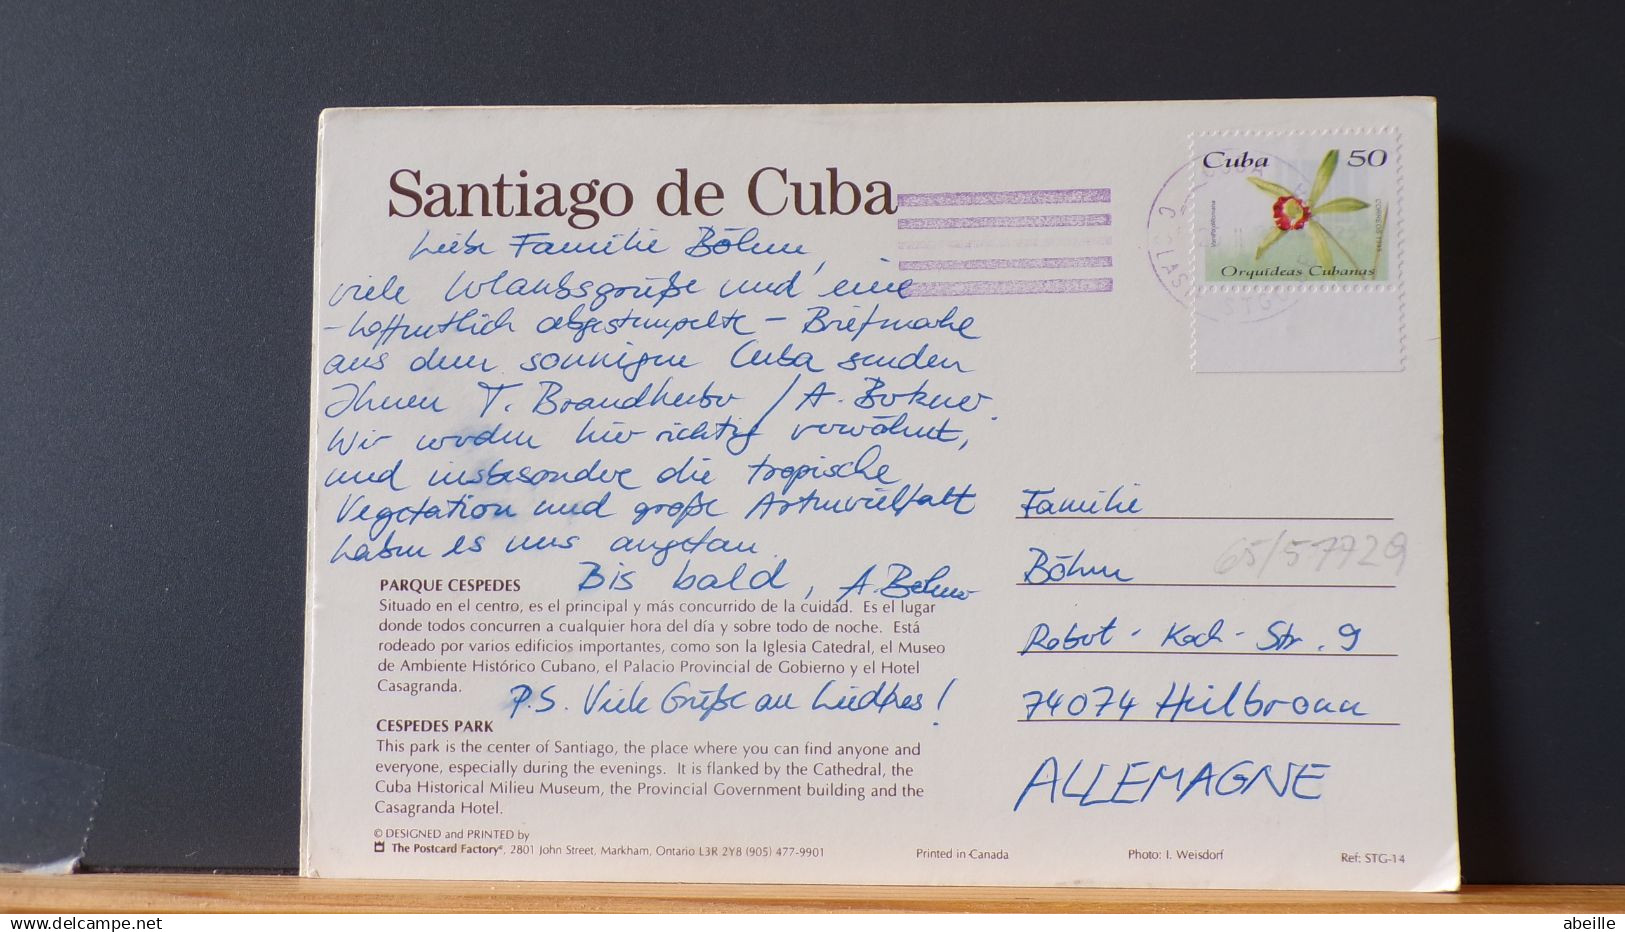 Santiago de Cuba
Cuba 50
CORREOS
Orquídeas Cubanas
Liebe Familie Böhm,
viele Urlaubsgrüße und eine
- hoffentlich abgestempelte - Briefmarke
aus dem sonnigen Cuba senden
Ihnen T. / A.
Wir werden hier richtig verwöhnt,
und insbesondere die tropische
Vegetation und große Artenvielfalt
haben es uns angetan.
Bis bald, A.
PARQUE CESPEDES
Situado en el centro, es el principal y más concurrido de la cuidad. Es el lugar
donde todos concurren a cualquier hora del día y sobre todo de noche. Está
rodeado por varios edificios importantes, como son la Iglesia Catedral, el Museo
de Ambiente Histórico Cubano, el Palacio Provincial de Gobierno y el Hotel
Casagranda.
P.S. Viele Grüße an !
CESPEDES PARK
This park is the center of Santiago, the place where you can find anyone and
everyone, especially during the evenings. It is flanked by the Cathedral, the
Cuba Historical Milieu Museum, the Provincial Government building and the
Casagranda Hotel.
© DESIGNED and PRINTED by
The Postcard Factory®, 2801 John Street, Markham, Ontario L3R 2Y8 (905) 477-9901
Printed in Canada
Photo: I. Weisdorf
Ref: STG-14
Familie
Böhm
65/57729
Robert-Koch-Str. 9
74074 Heilbronn
ALLEMAGNE
abeille